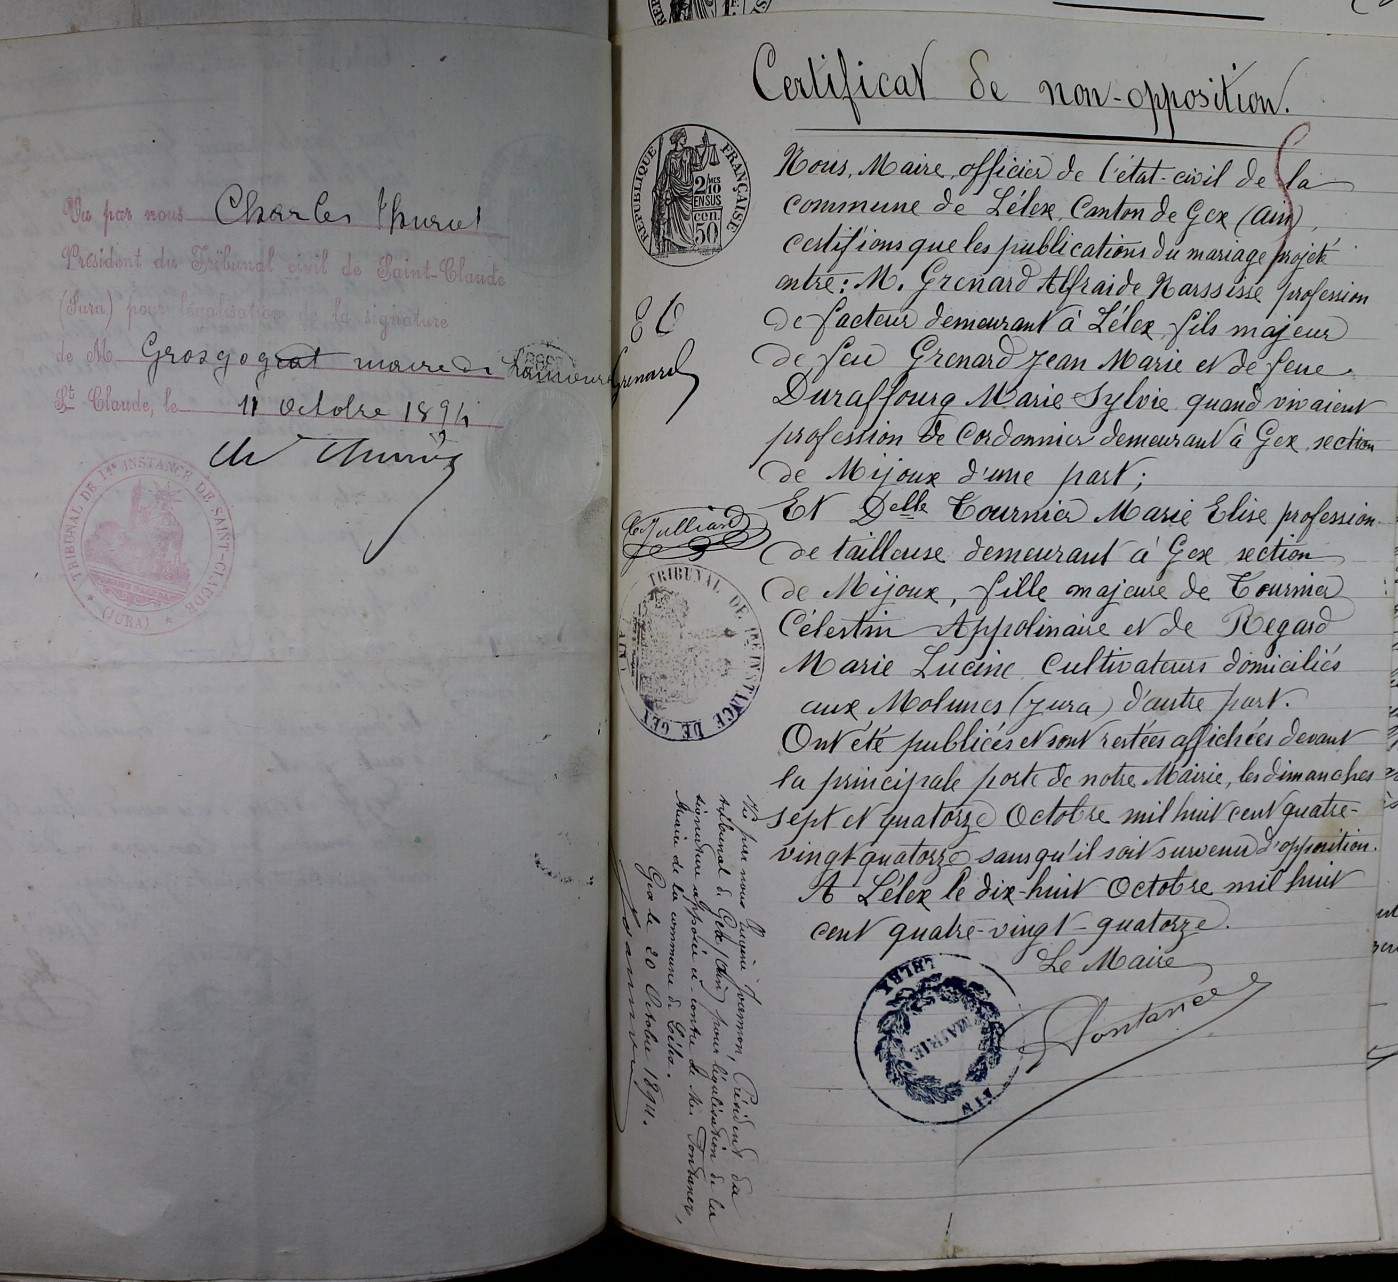 Vu par nous Charles Thurel
Président du Tribunal civil de Saint-Claude
(Jura) pour légalisation de la signature
de M Grosgogeat maire de Lamoura
St Claude, le 11 Octobre 1894
Ch Thurel
TRIBUNAL DE 1re INSTANCE DE SAINT-CLAUDE
(JURA)
Certificat de non-opposition.
RÉPUBLIQUE FRANÇAISE
2 10mes
EN SUS
50 cen.
86
Grenard
Julliard
TRIBUNAL DE 1RE INSTANCE DE GEX
Nous, Maire, officier de l'état-civil de la
commune de Lélex, Canton de Gex (Ain),
certifions que les publications du mariage projeté
entre : M. Grenard Alfraide Narssisse profession
de facteur demeurant à Lélex, fils majeur
de feu Grenard Jean Marie et de feue
Duraffourg Marie Sylvie quand vivaient
profession de Cordonnier demeurant à Gex, section
de Mijoux d'une part ;
Et Delle Tournier Marie Elise profession
de tailleuse demeurant à Gex section
de Mijoux, fille majeure de Tournier
Célestin Appolinaire et de Regard
Marie Lucine Cultivateurs domiciliés
aux Molunes (Jura) d'autre part.
Ont été publiées et sont restées affichées devant
la principale porte de notre Mairie, les dimanches
sept et quatorze Octobre mil huit cent quatre-
vingt-quatorze sans qu'il soit survenu d'opposition.
A Lélex le dix-huit Octobre mil huit
cent quatre-vingt-quatorze.
Le Maire
Fontanez
MAIRIE
LELEX
AIN
Vu par nous Eugène Joannon, Président du
tribunal de Gex (Ain) pour légalisation de la
signature apposée ci-contre de Mr Fontanez,
Maire de la commune de Lélex.
Gex le 20 Octobre 1894.
Joannon